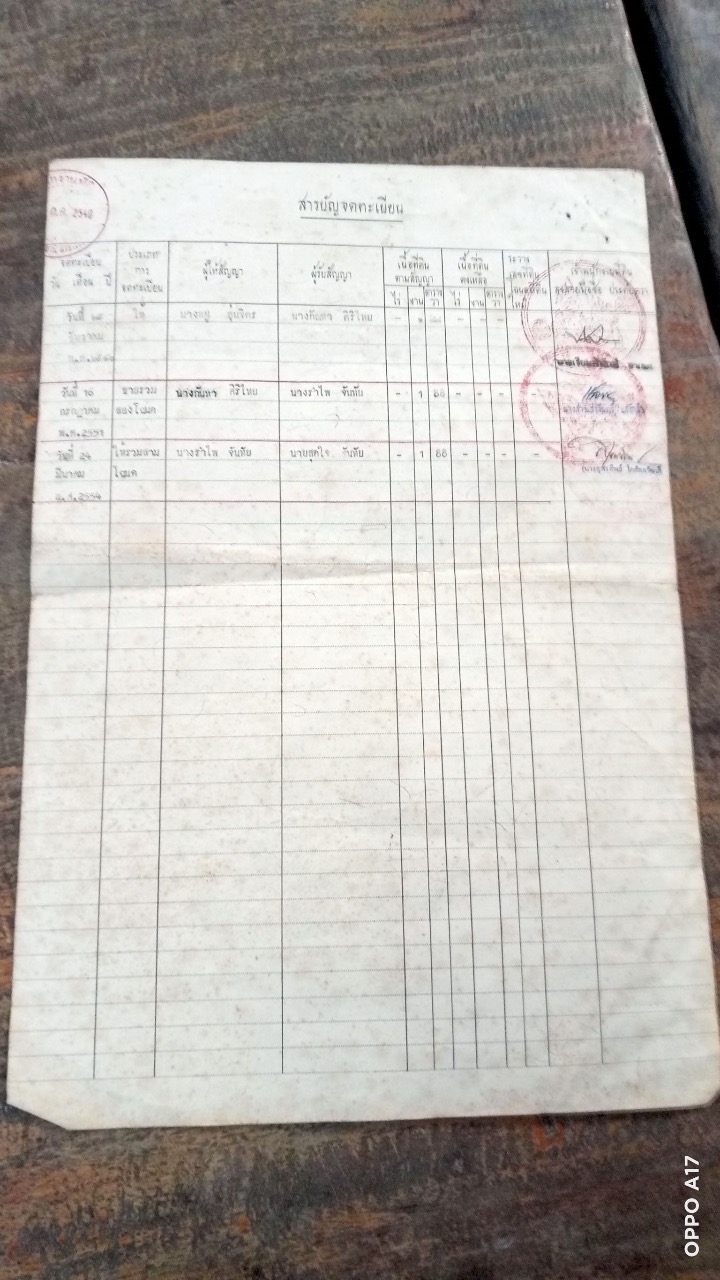 ต.ค. 2540
สารบัญจดทะเบียน
จดทะเบียน
วัน เดือน ปี
ประเภท
การ
จดทะเบียน
ผู้ให้สัญญา
ผู้รับสัญญา
เนื้อที่ดิน
ตามสัญญา
ไร่ งาน ตาราง
วา
เนื้อที่ดิน
คงเหลือ
ไร่ งาน ตาราง
วา
ระวาง
เลขที่ดิน
โฉนดที่ดิน
ใหม่
เจ้าพนักงานที่ดิน
ลงลายมือชื่อ ประทับตรา
วันที่
ให้
นางกันหา ศิริไทย
วันที่ 16
กรกฎาคม
พ.ศ.2551
ขายรวม
สองโฉนด
นางกันหา ศิริไทย
นางรำไพ จันทัย
- 1 88 - - - - -
วันที่ 24
มีนาคม
พ.ศ.2554
ให้รวมสาม
โฉนด
นางรำไพ จันทัย
นายสุดใจ จันทัย
- 1 88 - - - - -
OPPO A17